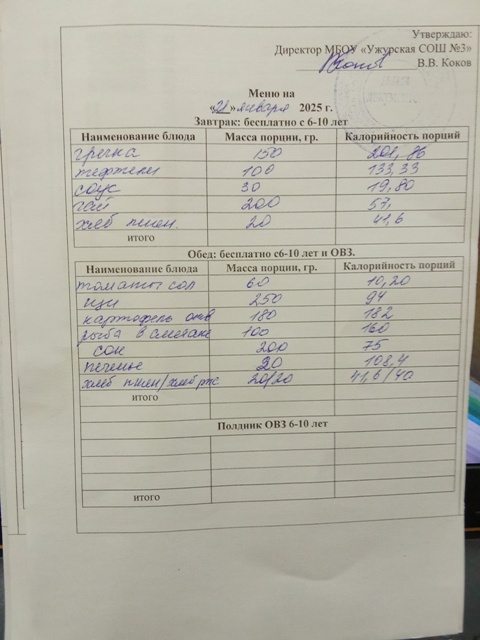 Утверждаю:
Директор МБОУ «Ужурская СОШ №3»
В.В. Коков
Меню на
«21» января 2025 г.
Завтрак: бесплатно с 6-10 лет
Наименование блюда Масса порции, гр. Калорийность порций
гречка 150 201,86
тефтели 100 133,33
соус 30 19,80
чай 200 57,
хлеб пшен. 20 41,6
итого
Обед: бесплатно с6-10 лет и ОВЗ.
Наименование блюда Масса порции, гр. Калорийность порций
томаты сол 60 10,20
щи 250 94
картофель отв 180 182
рыба в сметане 100 160
сок 200 75
печенье 20 108,4
хлеб пшен/хлеб рж 20/20 41,6/40
итого
Полдник ОВЗ 6-10 лет
итого